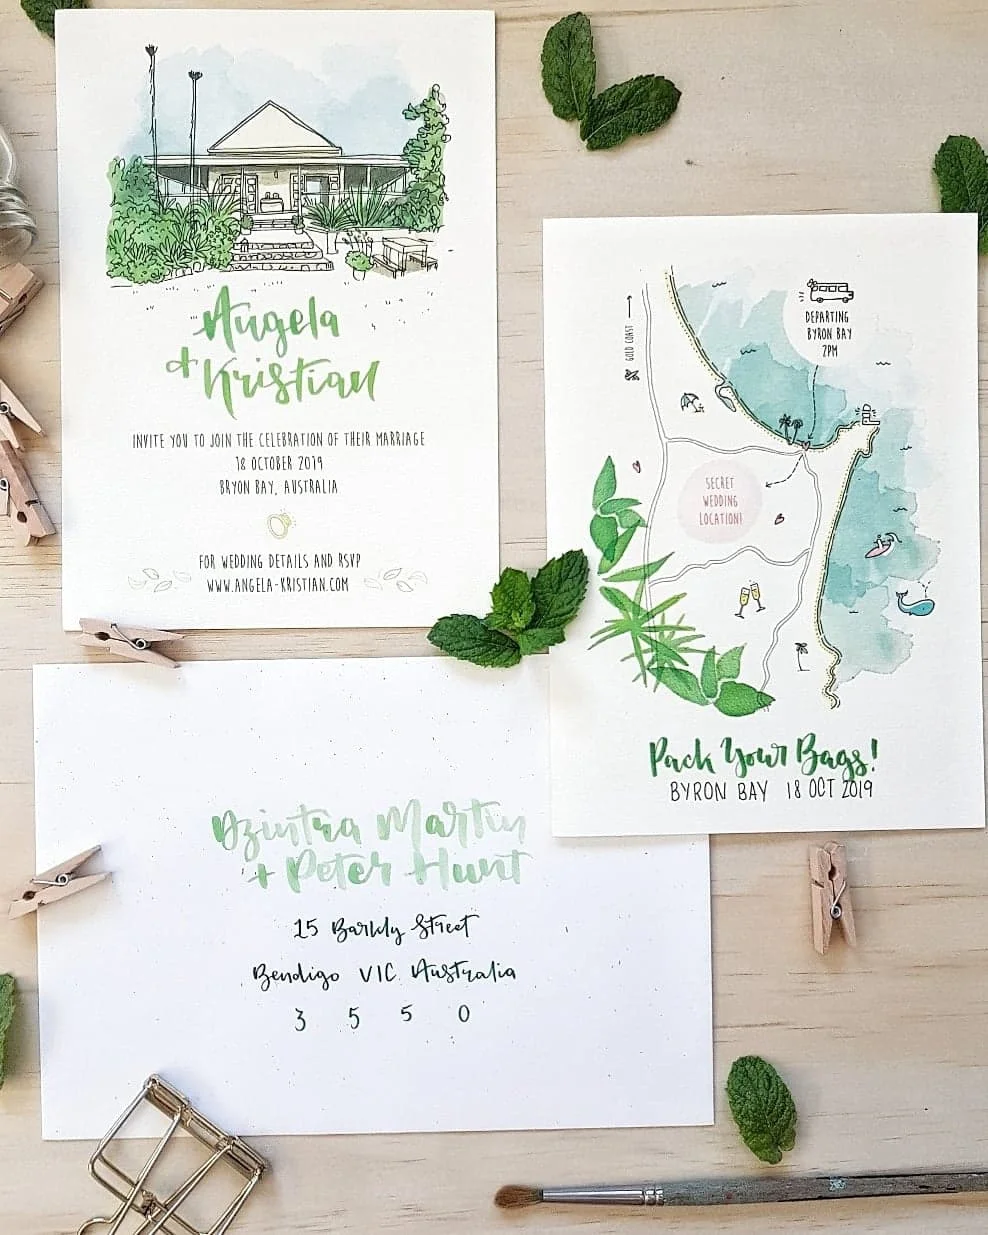 Angela
+ Kristian
INVITE YOU TO JOIN THE CELEBRATION OF THEIR MARRIAGE
18 OCTOBER 2019
BRYON BAY, AUSTRALIA
FOR WEDDING DETAILS AND RSVP
WWW.ANGELA-KRISTIAN.COM
GOLD COAST
DEPARTING
BYRON BAY
2PM
SECRET
WEDDING
LOCATION!
Pack Your Bags!
BYRON BAY 18 OCT 2019
Dzintra Martin
+ Peter Hunt
15 Barkly Street
Bendigo VIC Australia
3 5 5 0